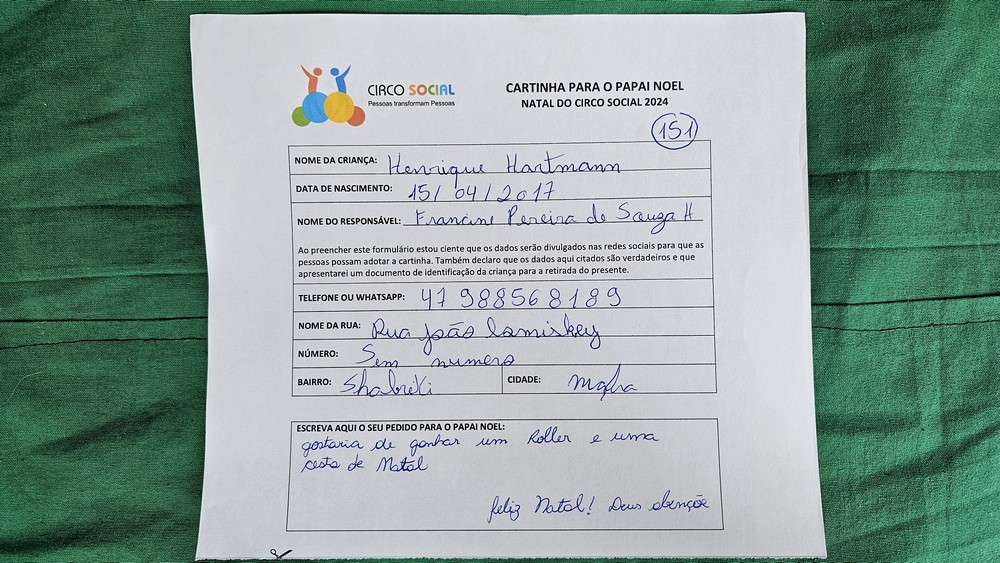 CIRCO SOCIAL
Pessoas transformam Pessoas
CARTINHA PARA O PAPAI NOEL
NATAL DO CIRCO SOCIAL 2024
151
NOME DA CRIANÇA: Henrique Hartmann
DATA DE NASCIMENTO: 15/04/2017
NOME DO RESPONSÁVEL: Francine Pereira de Souza H
Ao preencher este formulário estou ciente que os dados serão divulgados nas redes sociais para que as
pessoas possam adotar a cartinha. Também declaro que os dados aqui citados são verdadeiros e que
apresentarei um documento de identificação da criança para a retirada do presente.
TELEFONE OU WHATSAPP: 47 988568189
NOME DA RUA: Rua João
NÚMERO: Sem numero
BAIRRO: CIDADE: Mafra
ESCREVA AQUI O SEU PEDIDO PARA O PAPAI NOEL:
gostaria de ganhar um Roller e uma
cesta de Natal
feliz Natal! Deus abençõe